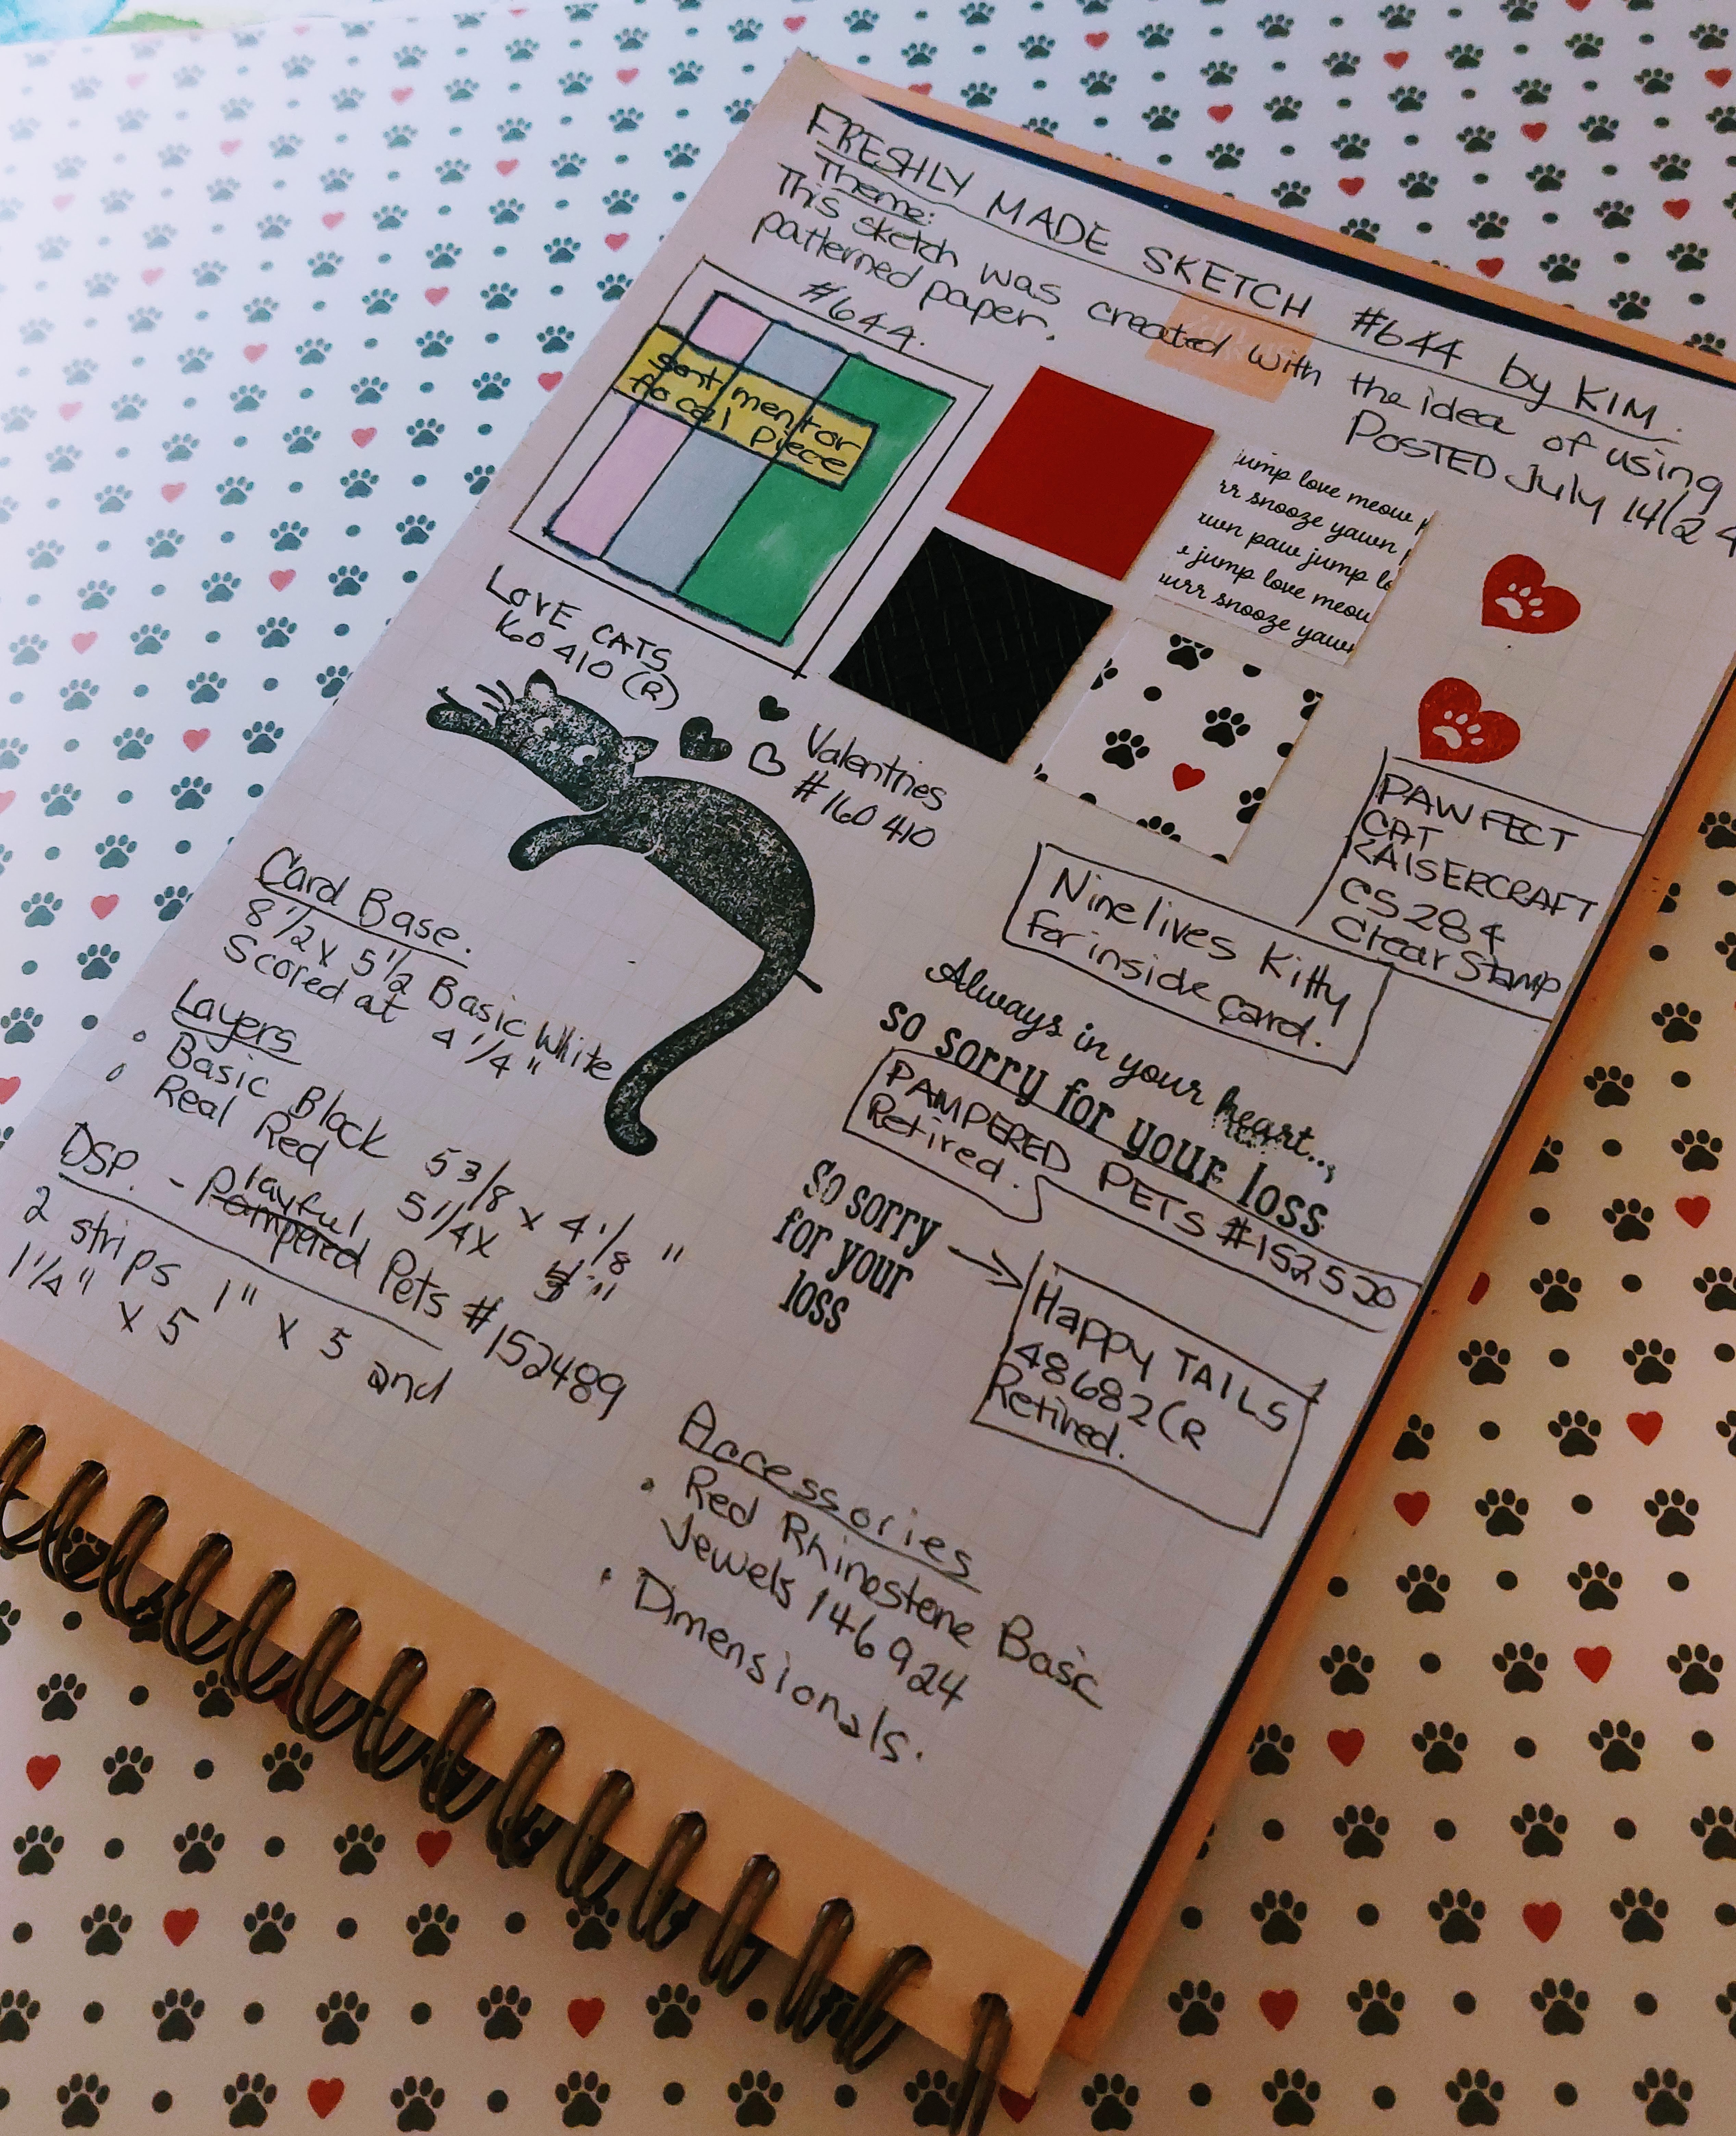 FRESHLY MADE SKETCH #644 by KIM.
Theme:
This sketch was created with the idea of using
patterned paper.
POSTED July 14/24
#644.
sentiment or
focal piece
jump love meow
rr snooze yawn
wn paw jump lo
e jump love meow
urr snooze yawn
LOVE CATS
160410 (R)
Valentines
#160410
PAWFECT
CAT
KAISERCRAFT
CS284
Clear Stamp
Nine lives Kitty
for inside card.
Card Base.
8 1/2 x 5 1/2 Basic White
Scored at 4 1/4"
Layers
Basic Black 5 3/8 x 4 1/8"
Real Red 5 1/4 x
DSP. - Playful Pampered Pets #152489
2 strips 1" x 5 and
1 1/4" x 5
Always in your heart...
so sorry for your loss
PAMPERED PETS #152520
Retired.
so sorry
for your
loss
Happy TAILS
48682 (R
Retired.
Accessories
Red Rhinestone Basic
Jewels 146924
Dimensionals.